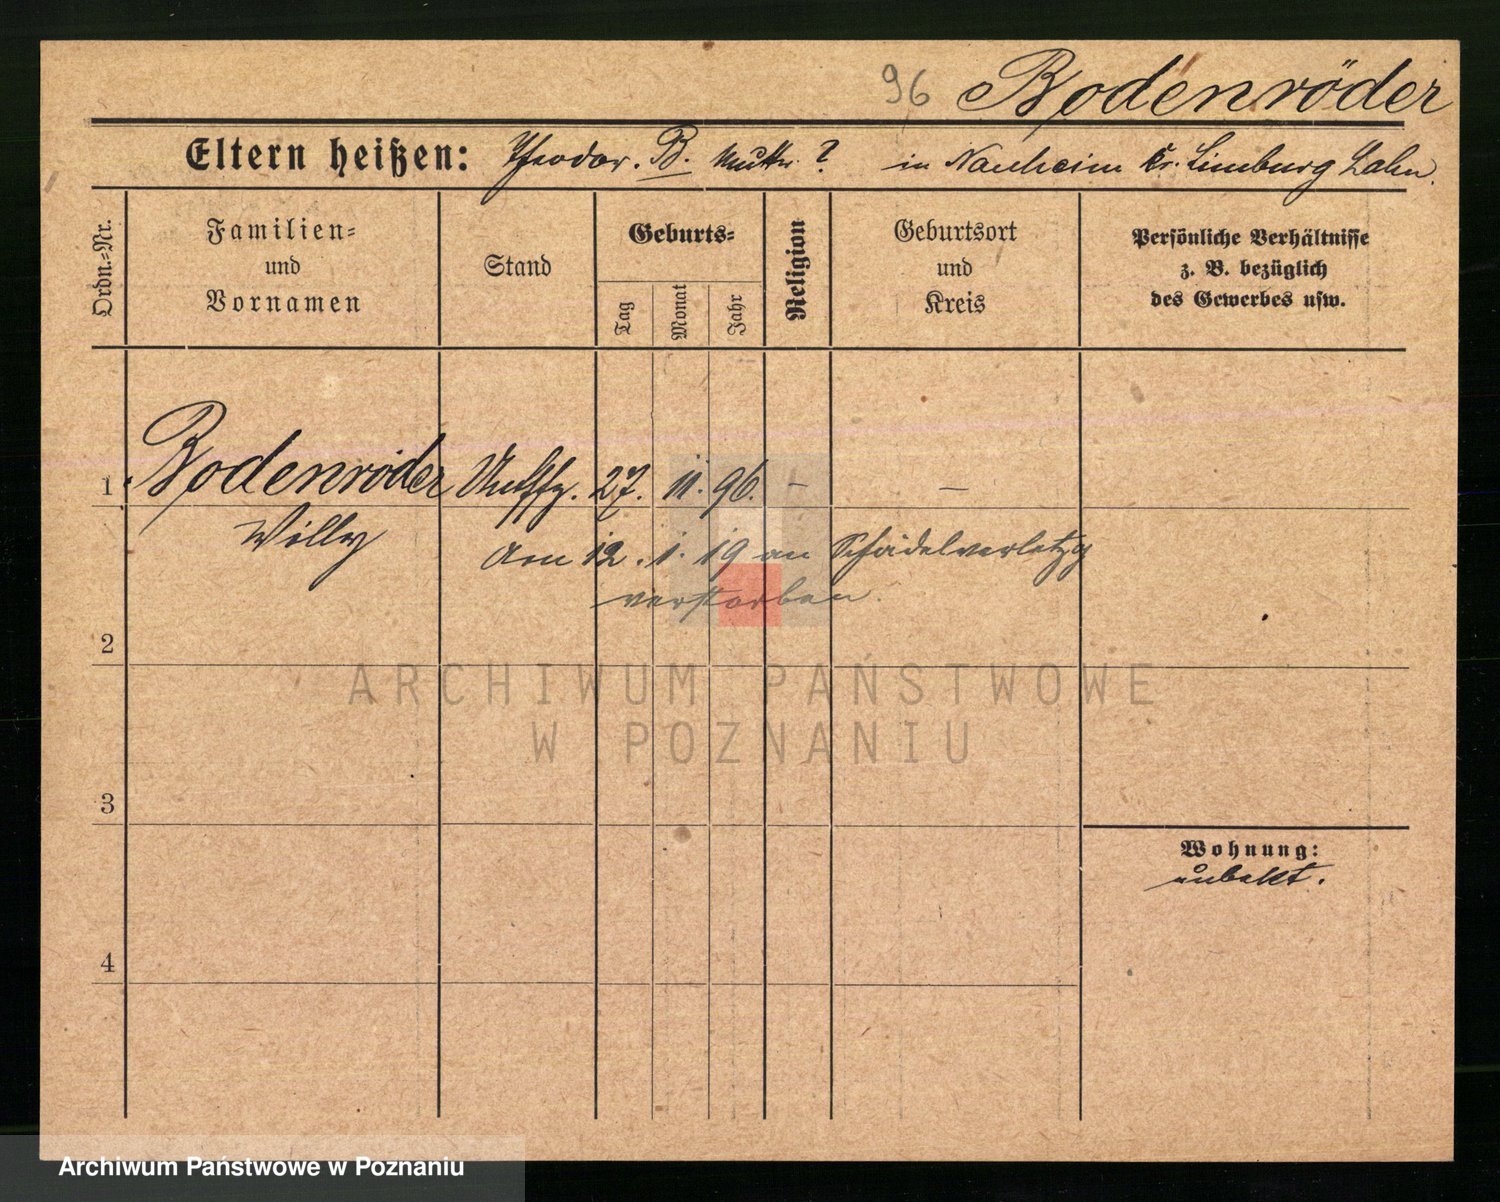 96 Bodenröder
Eltern heißen: Theodor. B. Mutter ? in Nauheim Kr. Limburg Lahn.
Ordn.-Nr.
Familien-
und
Vornamen
Stand
Geburts-
Tag
Monat
Jahr
Religion
Geburtsort
und
Kreis
Persönliche Verhältnisse
z. B. bezüglich
des Gewerbes usw.
1 Bodenröder 27. 11. 96. - -
Willy
am 12. 1. 19 an Schädelverletzg
verstorben.
2
ARCHIWUM PAŃSTWOWE
W POZNANIU
3
Wohnung:
unbekt.
4
Archiwum Państwowe w Poznaniu